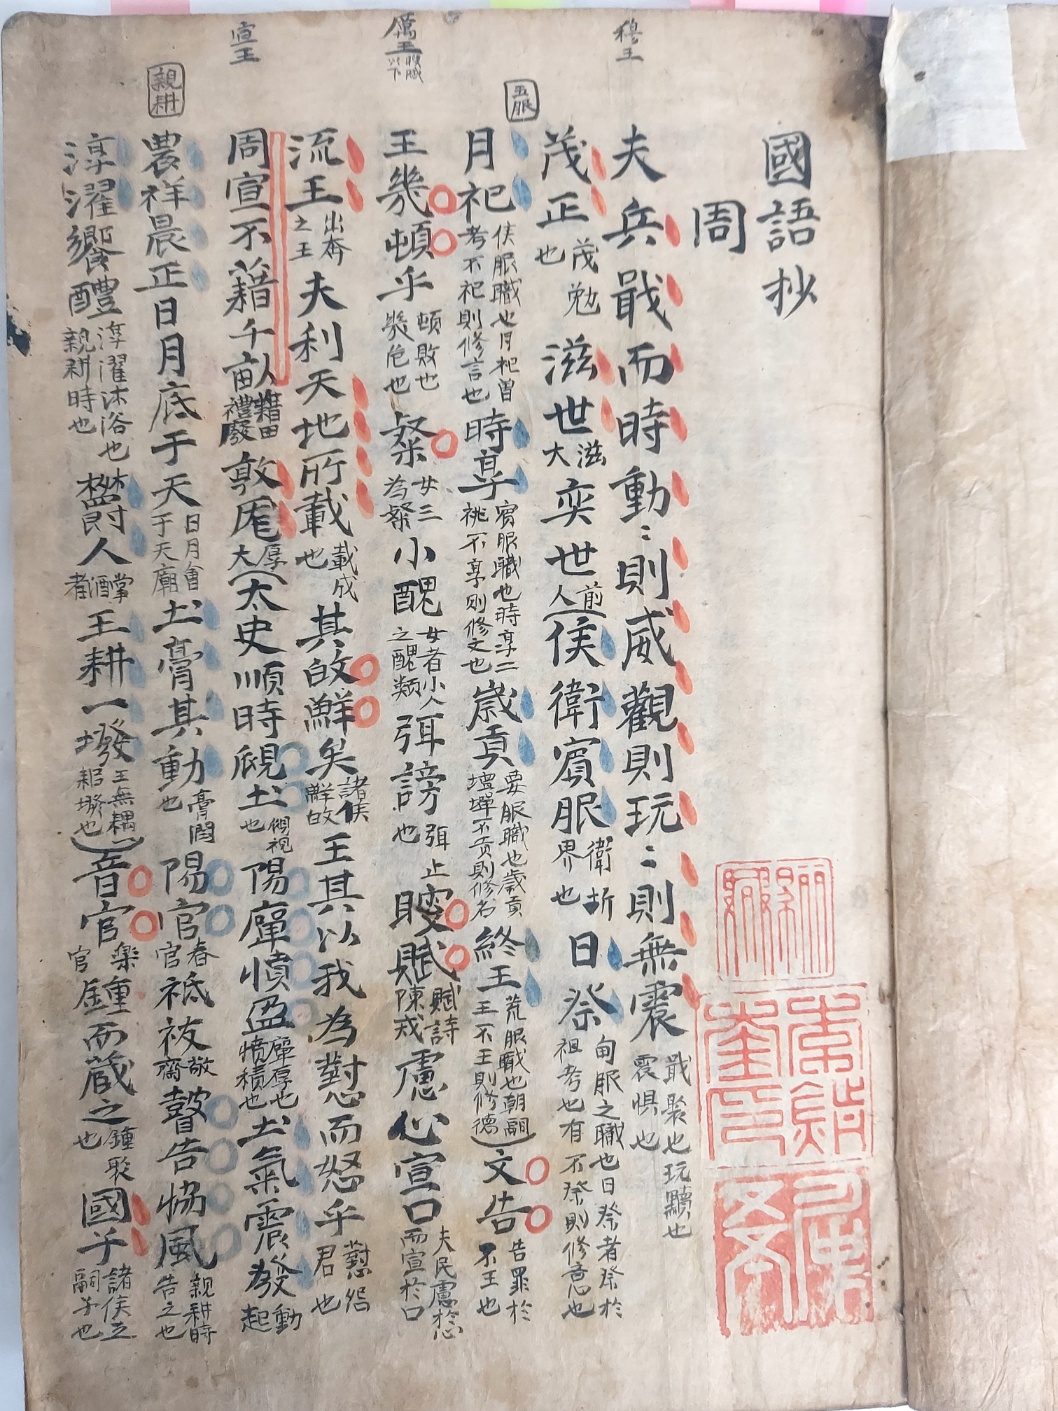 國語抄
周
穆王
夫兵戢而時動〻則威觀則玩〻則無震 戢聚也玩黷也震惧也
茂正 茂勉也 滋世 滋大 奕世 前人 侯衛賓服 衛圻界也 日祭 甸服之職也日祭者祭於祖考也有不祭則修意也
五服
月祀 侯服職也月祀曾考不祀則修言也 時享 賓服職也時享二祧不享則修文也 歲貢 要服職也歲貢壇墠不貢則修名 終王 荒服職也朝嗣王不王則修德 文告 告罪於不王也
厲王 以下
王幾頓乎 頓敗也幾危也 粲 女三為粲 小醜 女者小人之醜類 弭謗 弭止也 瞍賦 賦詩陳戒 慮心宣口 夫民慮於心而宣於口
流王 出奔之王 夫利天地所載 載成也 其故鮮矣 諸侯鮮故 王其以我為懟而怒乎 懟怨君也
宣王
周宣不藉千畝 藉田禮廢 敦厖 厚大 太史順時覛土 覛視也 陽癉憤盈 癉厚也憤積也 土氣震發 動起
親耕
農祥晨正日月底于天 日月會于天廟 土膏其動 膏潤也 陽官 春官 祗祓 敬齋 瞽告協風 親耕時告之也
淳濯饗醴 淳濯沐浴也親耕時也 欝人 掌酒者 王耕一墢 王無耦一耜墢也 音官 樂官 鍾而藏之 鍾聚也 國子 諸侯之嗣子也